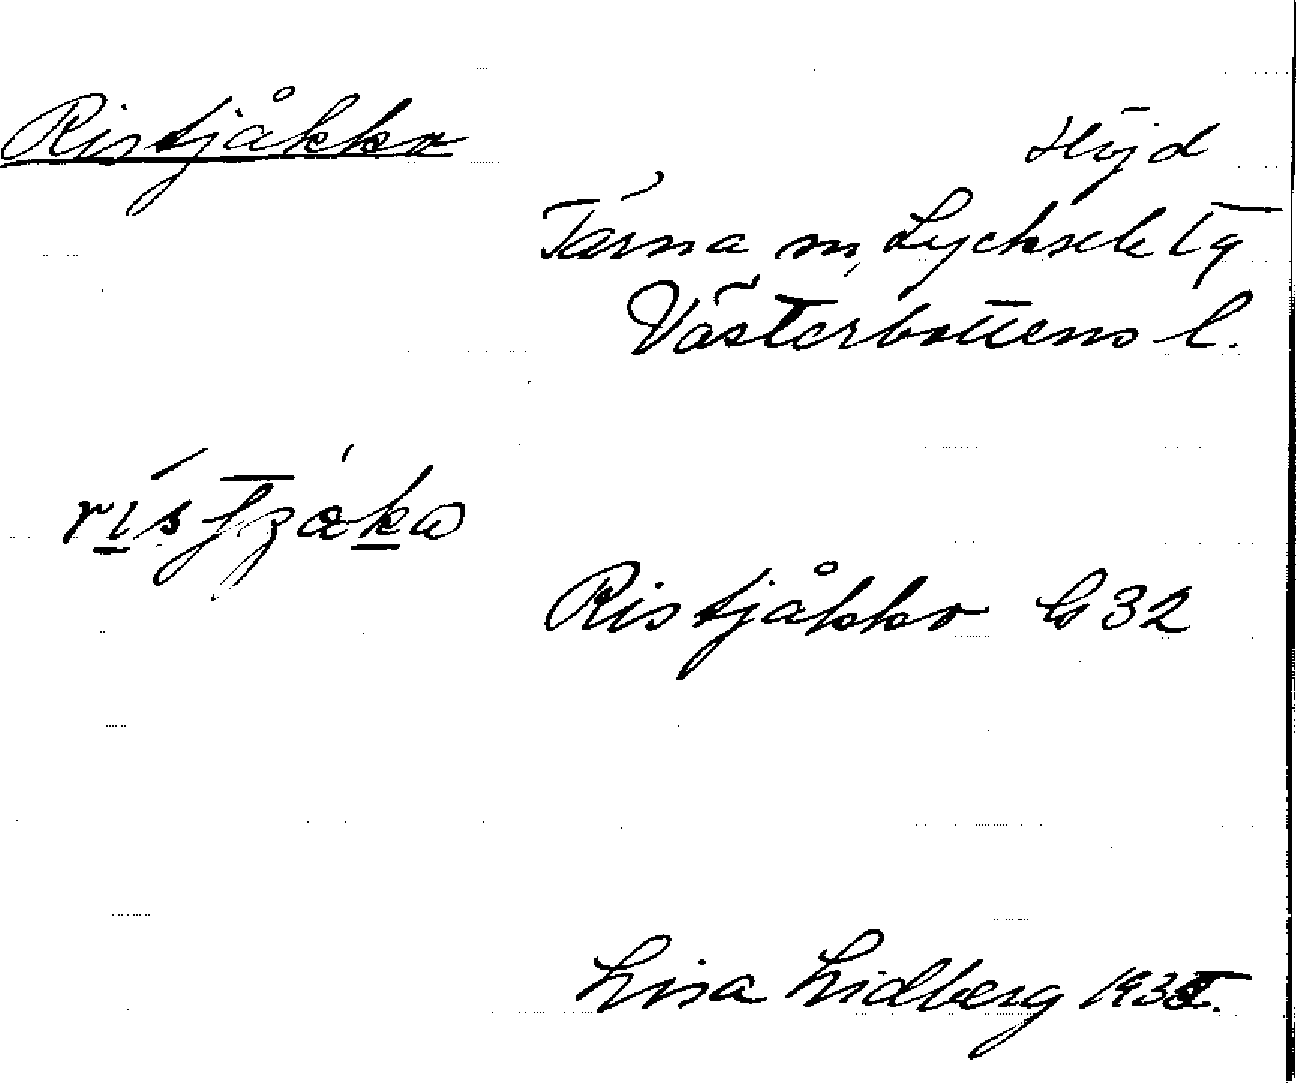 Ristjåkko
Höjd
Tärna sn, Lycksele lg
Västerbottens l.
Ristjåkko G 32
Lisa Lidberg